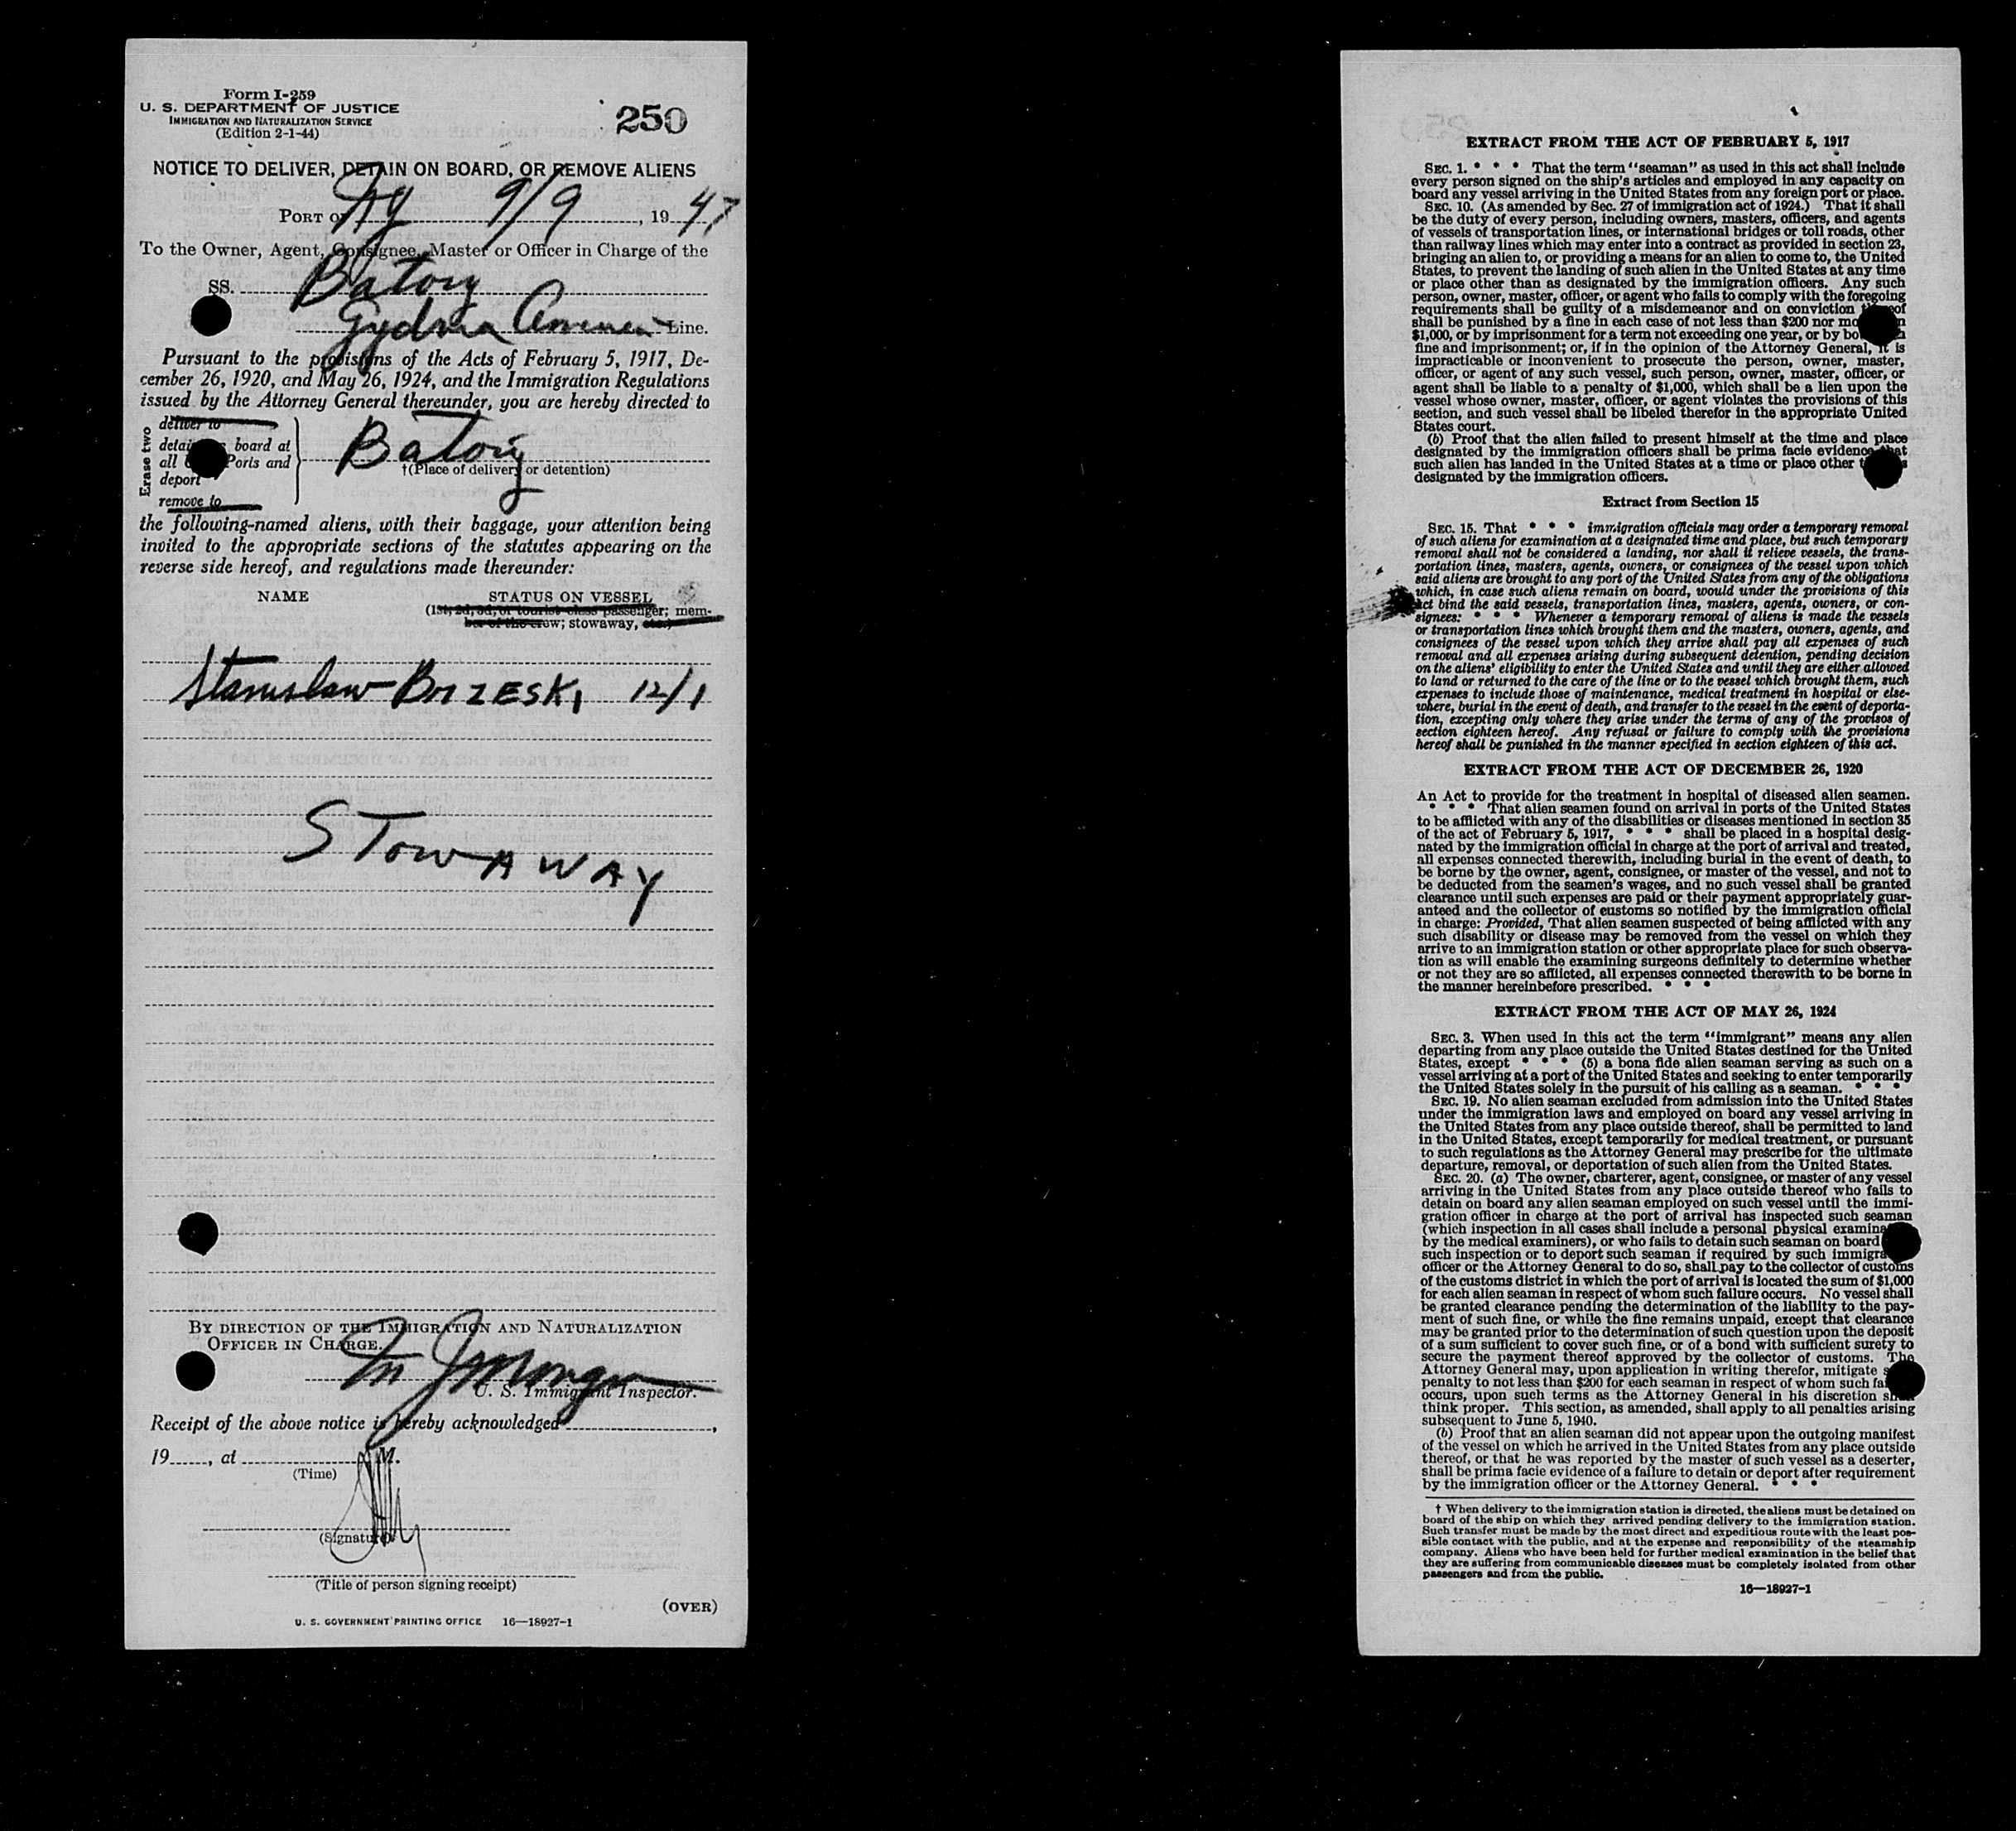 Form I-259
U. S. DEPARTMENT OF JUSTICE
IMMIGRATION AND NATURALIZATION SERVICE
(Edition 2-1-44)
250
NOTICE TO DELIVER, DETAIN ON BOARD, OR REMOVE ALIENS
PORT OF NY 9/9, 1947
To the Owner, Agent, Consignee, Master or Officer in Charge of the
SS. Batory
Gydnia Line.
Pursuant to the provisions of the Acts of February 5, 1917, De-
cember 26, 1920, and May 26, 1924, and the Immigration Regulations
issued by the Attorney General thereunder, you are hereby directed to
Erase two
deliver to
detain board at
all Ports and
deport
remove to
Batory
†(Place of delivery or detention)
the following-named aliens, with their baggage, your attention being
invited to the appropriate sections of the statutes appearing on the
reverse side hereof, and regulations made thereunder:
NAME STATUS ON VESSEL
(1st, 2d, 3d, or tourist class passenger; mem-
ber of the crew; stowaway, etc.)
Stanislaw BRZESKI 12/1
STOWAWAY
BY DIRECTION OF THE IMMIGRATION AND NATURALIZATION
OFFICER IN CHARGE.
U. S. Immigrant Inspector.
Receipt of the above notice is hereby acknowledged ,
19 , at M.
(Time)
(Signature)
(Title of person signing receipt)
(OVER)
U. S. GOVERNMENT PRINTING OFFICE 16—18927-1
EXTRACT FROM THE ACT OF FEBRUARY 5, 1917
SEC. 1. * * * That the term "seaman" as used in this act shall include
every person signed on the ship's articles and employed in any capacity on
board any vessel arriving in the United States from any foreign port or place.
SEC. 10. (As amended by Sec. 27 of immigration act of 1924.) That it shall
be the duty of every person, including owners, masters, officers, and agents
of vessels of transportation lines, or international bridges or toll roads, other
than railway lines which may enter into a contract as provided in section 23,
bringing an alien to, or providing a means for an alien to come to, the United
States, to prevent the landing of such alien in the United States at any time
or place other than as designated by the immigration officers. Any such
person, owner, master, officer, or agent who fails to comply with the foregoing
requirements shall be guilty of a misdemeanor and on conviction thereof
shall be punished by a fine in each case of not less than $200 nor more than
$1,000, or by imprisonment for a term not exceeding one year, or by both such
fine and imprisonment; or, if in the opinion of the Attorney General, it is
impracticable or inconvenient to prosecute the person, owner, master,
officer, or agent of any such vessel, such person, owner, master, officer, or
agent shall be liable to a penalty of $1,000, which shall be a lien upon the
vessel whose owner, master, officer, or agent violates the provisions of this
section, and such vessel shall be libeled therefor in the appropriate United
States court.
(b) Proof that the alien failed to present himself at the time and place
designated by the immigration officers shall be prima facie evidence that
such alien has landed in the United States at a time or place other than as
designated by the immigration officers.
Extract from Section 15
SEC. 15. That * * * immigration officials may order a temporary removal
of such aliens for examination at a designated time and place, but such temporary
removal shall not be considered a landing, nor shall it relieve vessels, the trans-
portation lines, masters, agents, owners, or consignees of the vessel upon which
said aliens are brought to any port of the United States from any of the obligations
which, in case such aliens remain on board, would under the provisions of this
act bind the said vessels, transportation lines, masters, agents, owners, or con-
signees: * * * Whenever a temporary removal of aliens is made the vessels
or transportation lines which brought them and the masters, owners, agents, and
consignees of the vessel upon which they arrive shall pay all expenses of such
removal and all expenses arising during subsequent detention, pending decision
on the aliens' eligibility to enter the United States and until they are either allowed
to land or returned to the care of the line or to the vessel which brought them, such
expenses to include those of maintenance, medical treatment in hospital or else-
where, burial in the event of death, and transfer to the vessel in the event of deporta-
tion, excepting only where they arise under the terms of any of the provisos of
section eighteen hereof. Any refusal or failure to comply with the provisions
hereof shall be punished in the manner specified in section eighteen of this act.
EXTRACT FROM THE ACT OF DECEMBER 26, 1920
An Act to provide for the treatment in hospital of diseased alien seamen.
* * * That alien seamen found on arrival in ports of the United States
to be afflicted with any of the disabilities or diseases mentioned in section 35
of the act of February 5, 1917, * * * shall be placed in a hospital desig-
nated by the immigration official in charge at the port of arrival and treated,
all expenses connected therewith, including burial in the event of death, to
be borne by the owner, agent, consignee, or master of the vessel, and not to
be deducted from the seamen's wages, and no such vessel shall be granted
clearance until such expenses are paid or their payment appropriately guar-
anteed and the collector of customs so notified by the immigration official
in charge: Provided, That alien seamen suspected of being afflicted with any
such disability or disease may be removed from the vessel on which they
arrive to an immigration station or other appropriate place for such observa-
tion as will enable the examining surgeons definitely to determine whether
or not they are so afflicted, all expenses connected therewith to be borne in
the manner hereinbefore prescribed. * * *
EXTRACT FROM THE ACT OF MAY 26, 1924
SEC. 3. When used in this act the term "immigrant" means any alien
departing from any place outside the United States destined for the United
States, except * * * (5) a bona fide alien seaman serving as such on a
vessel arriving at a port of the United States and seeking to enter temporarily
the United States solely in the pursuit of his calling as a seaman. * * *
SEC. 19. No alien seaman excluded from admission into the United States
under the immigration laws and employed on board any vessel arriving in
the United States from any place outside thereof, shall be permitted to land
in the United States, except temporarily for medical treatment, or pursuant
to such regulations as the Attorney General may prescribe for the ultimate
departure, removal, or deportation of such alien from the United States.
SEC. 20. (a) The owner, charterer, agent, consignee, or master of any vessel
arriving in the United States from any place outside thereof who fails to
detain on board any alien seaman employed on such vessel until the immi-
gration officer in charge at the port of arrival has inspected such seaman
(which inspection in all cases shall include a personal physical examina
by the medical examiners), or who fails to detain such seaman on board
such inspection or to deport such seaman if required by such immigra
officer or the Attorney General to do so, shall pay to the collector of customs
of the customs district in which the port of arrival is located the sum of $1,000
for each alien seaman in respect of whom such failure occurs. No vessel shall
be granted clearance pending the determination of the liability to the pay-
ment of such fine, or while the fine remains unpaid, except that clearance
may be granted prior to the determination of such question upon the deposit
of a sum sufficient to cover such fine, or of a bond with sufficient surety to
secure the payment thereof approved by the collector of customs. The
Attorney General may, upon application in writing therefor, mitigate such
penalty to not less than $200 for each seaman in respect of whom such failure
occurs, upon such terms as the Attorney General in his discretion shall
think proper. This section, as amended, shall apply to all penalties arising
subsequent to June 5, 1940.
(b) Proof that an alien seaman did not appear upon the outgoing manifest
of the vessel on which he arrived in the United States from any place outside
thereof, or that he was reported by the master of such vessel as a deserter,
shall be prima facie evidence of a failure to detain or deport after requirement
by the immigration officer or the Attorney General. * * *
† When delivery to the immigration station is directed, the aliens must be detained on
board of the ship on which they arrived pending delivery to the immigration station.
Such transfer must be made by the most direct and expeditious route with the least pos-
sible contact with the public, and at the expense and responsibility of the steamship
company. Aliens who have been held for further medical examination in the belief that
they are suffering from communicable diseases must be completely isolated from other
passengers and from the public.
16—18927-1